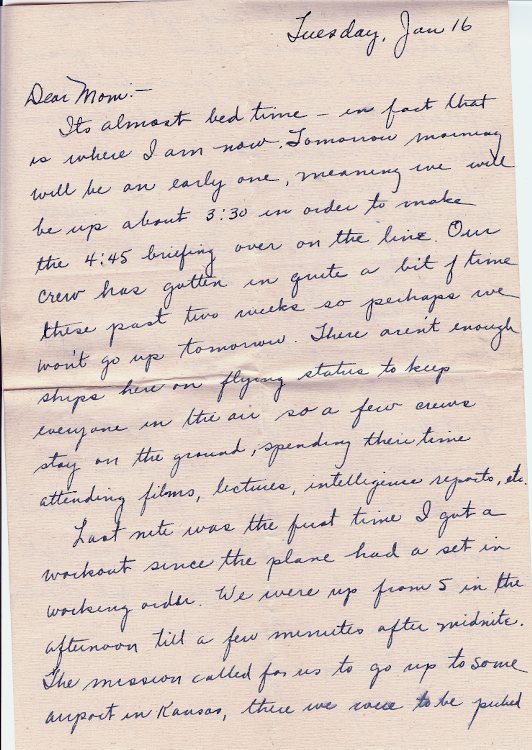 Tuesday, Jan 16
Dear Mom:—
Its almost bed time – in fact that
is where I am now. Tomorrow morning
will be an early one, meaning we will
be up about 3:30 in order to make
the 4:45 briefing over on the line. Our
crew has gotten in quite a bit of time
these past two weeks so perhaps we
won't go up tomorrow. There aren't enough
ships here on flying status to keep
everyone in the air so a few crews
stay on the ground, spending their time
attending films, lectures, intelligence reports, etc.
Last nite was the first time I got a
workout since the plane had a set in
working order. We were up from 5 in the
afternoon till a few minutes after midnite.
The mission called for us to go up to some
airport in Kansas, there we were to be picked